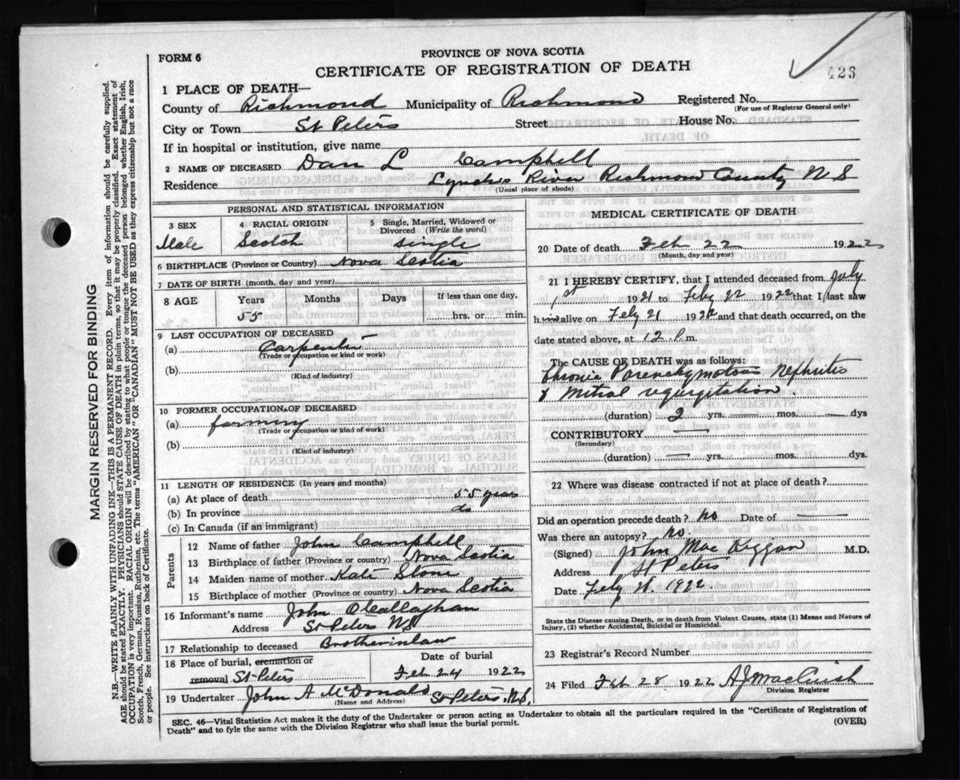 FORM 6
PROVINCE OF NOVA SCOTIA
CERTIFICATE OF REGISTRATION OF DEATH
423
1 PLACE OF DEATH—
County of Richmond Municipality of Richmond Registered No.
(For use of Registrar General only)
City or Town St Peters Street House No.
If in hospital or institution, give name
2 NAME OF DECEASED Dan L Campbell
Residence Lynchs River Richmond County N S
(Usual place of abode)
PERSONAL AND STATISTICAL INFORMATION
3 SEX 4 RACIAL ORIGIN 5 Single, Married, Widowed or Divorced (Write the word)
Male Scotch single
6 BIRTHPLACE (Province or Country) Nova Scotia
7 DATE OF BIRTH (month, day and year)
8 AGE Years Months Days If less than one day,
55 hrs. or min.
9 LAST OCCUPATION OF DECEASED
(a) Carpenter
(Trade or occupation or kind or work)
(b)
(Kind of industry)
10 FORMER OCCUPATION OF DECEASED
(a) farming
(Trade or occupation or kind of work)
(b)
(Kind of industry)
11 LENGTH OF RESIDENCE (In years and months)
(a) At place of death 55 years
(b) In province do
(c) In Canada (if an immigrant)
Parents
12 Name of father John Campbell
13 Birthplace of father (Province or Country) Nova Scotia
14 Maiden name of mother Kate
15 Birthplace of mother (Province or Country) Nova Scotia
16 Informant's name John O'Callaghan
Address St Peters NS
17 Relationship to deceased Brotherinlaw
18 Place of burial, cremation or removal St Peters
Date of burial
Feb 24 1922
19 Undertaker John A McDonald St Peters N.S.
(Name and Address)
MEDICAL CERTIFICATE OF DEATH
20 Date of death Feb 22 1922
(Month, day and year)
21 I HEREBY CERTIFY, that I attended deceased from July
1st 1921 to Feby 22 1922 that I last saw
him alive on Feby 21 1922 and that death occurred, on
date stated above, at 12 P.m.
The CAUSE OF DEATH was as follows:
Chronic Parenchymatous Nephritis
& Mitral regurgitation
(duration) 2 yrs. — mos. — dys
CONTRIBUTORY —
(Secondary)
(duration) — yrs. mos. dys.
22 Where was disease contracted if not at place of death?
Did an operation precede death? No Date of —
Was there an autopsy? no.
(Signed) John Mac M.D.
Address St Peters
Date Feby 1922
State the Disease causing Death, or in death from Violent Causes, state (1) Means and Nature of
Injury, (2) whether Accidental, Suicidal or Homicidal.
23 Registrar's Record Number
24 Filed Feb 28 1922 A J MacCuish
Division Registrar
SEC. 46—Vital Statistics Act makes it duty of the Undertaker or person acting as Undertaker to obtain all the particulars required in the "Certificate of Registration of
Death" and to fyle the same with the Division Registrar who shall issue the burial permit.
(OVER)
MARGIN RESERVED FOR BINDING
N.B.—WRITE PLAINLY WITH UNFADING INK—THIS IS A PERMANENT RECORD. Every item of information should be carefully supplied.
AGE should be stated EXACTLY. PHYSICIANS should STATE CAUSE OF DEATH in plain terms, so that it may be properly classified. Exact statement of
OCCUPATION is very important. RACIAL ORIGIN will be described by stating to what people or tongue the deceased person belonged whether English, Irish,
Scotch, French, German, Russian, Ruthenian, etc. The terms "AMERICAN" OR "CANADIAN" MUST NOT BE USED as they express citizenship but not a race
or people. See instructions on back of Certificate.